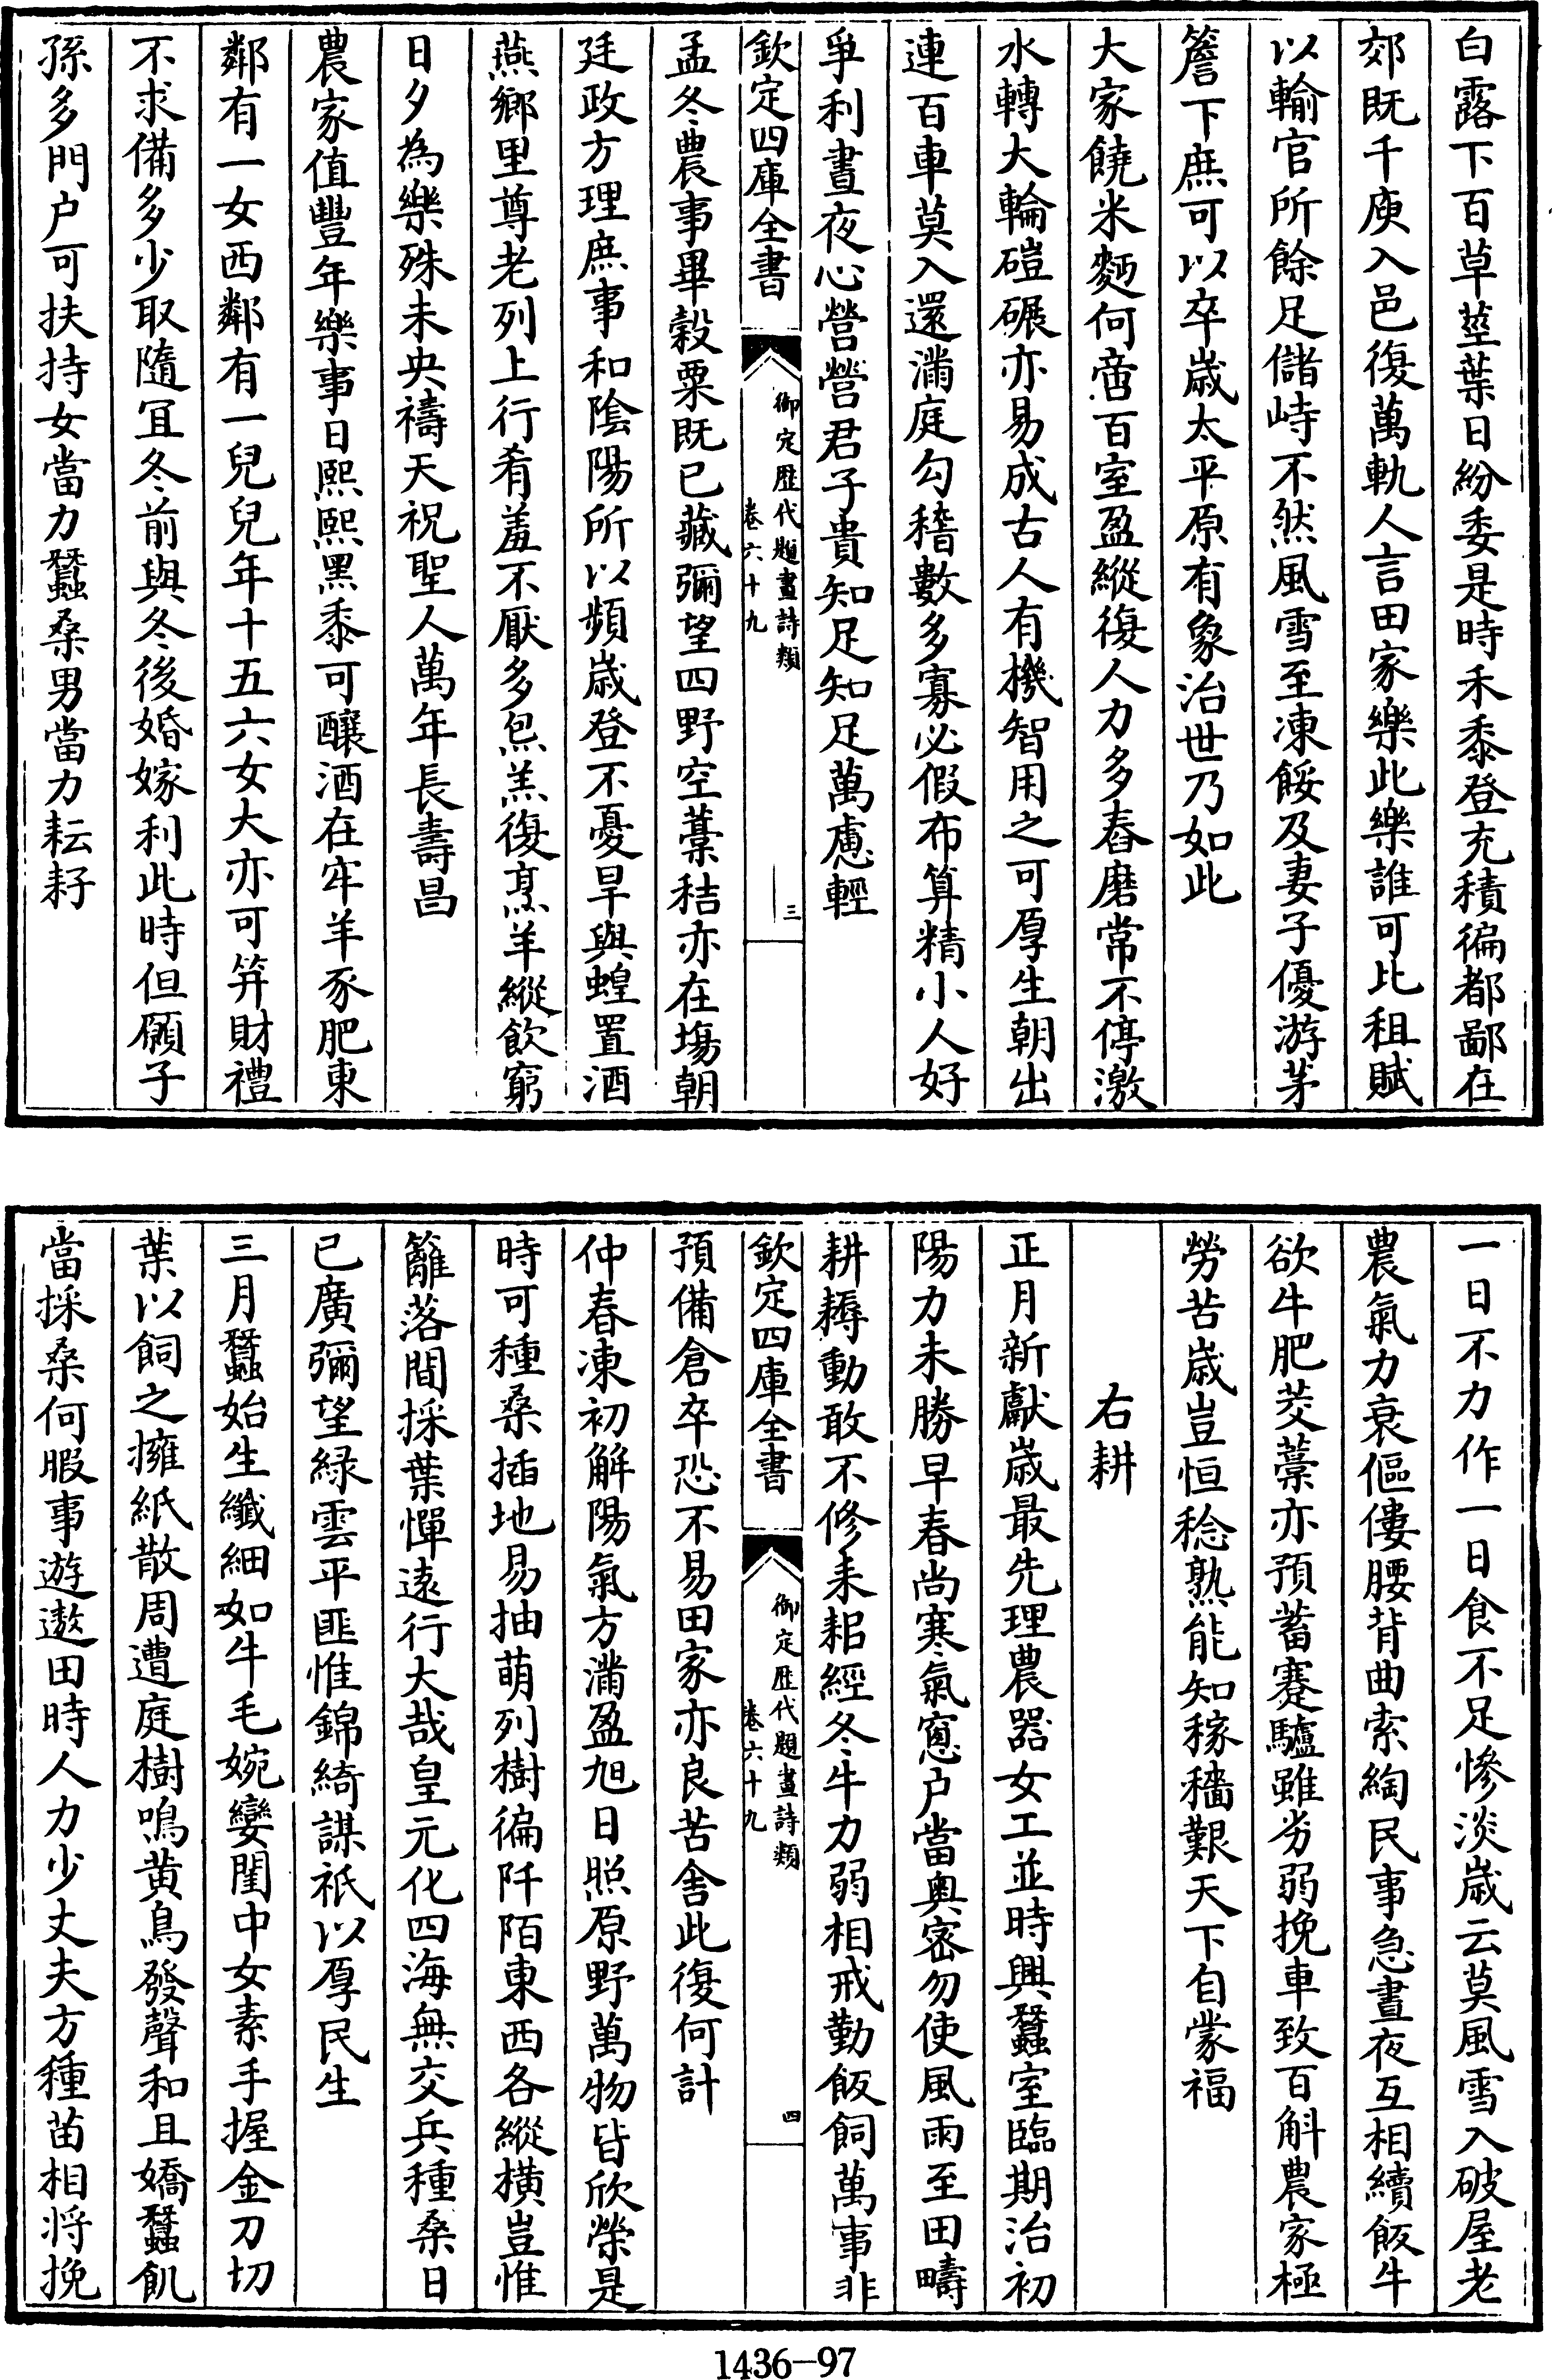 白露下百草莖葉日紛委是時禾黍登充積徧都鄙在
郊既千庾入邑復萬軌人言田家樂此樂誰可比租賦
以輸官所餘足儲峙不然風雪至凍餒及妻子優游茅
簷下庶可以卒歲太平原有象治世乃如此
大家饒米麪何啻百室盈縱復人力多舂磨常不停激
水轉大輪磑碾亦易成古人有機智用之可厚生朝出
連百車莫入還滿庭勾稽數多寡必假布算精小人好
爭利晝夜心營營君子貴知足知足萬慮輕
欽定四庫全書
御定歷代題畫詩類
卷六十九
三
孟冬農事畢穀粟既已藏彌望四野空藁秸亦在場朝
廷政方理庶事和陰陽所以頻歲登不憂旱與蝗置酒
燕鄉里尊老列上行肴羞不厭多炰羔復烹羊縱飲窮
日夕為樂殊未央禱天祝聖人萬年長壽昌
農家值豐年樂事日熙熙黑黍可釀酒在牢羊豕肥東
鄰有一女西鄰有一兒兒年十五六女大亦可笄財禮
不求備多少取隨宜冬前與冬後婚嫁利此時但願子
孫多門户可扶持女當力蠶桑男當力耘耔
一日不力作一日食不足慘淡歲云莫風雪入破屋老
農氣力衰傴僂腰背曲索綯民事急晝夜互相續飯牛
欲牛肥茭藁亦預蓄蹇驢雖劣弱挽車致百斛農家極
勞苦歲豈恒稔熟能知稼穡艱天下自蒙福
右耕
正月新獻歲最先理農器女工並時興蠶室臨期治初
陽力未勝早春尚寒氣窻户當奥密勿使風雨至田疇
耕耨動敢不修耒耜經冬牛力弱相戒勤飯飼萬事非
欽定四庫全書
御定歷代題畫詩類
卷六十九
四
預備倉卒恐不易田家亦良苦舍此復何計
仲春凍初解陽氣方滿盈旭日照原野萬物皆欣榮是
時可種桑插地易抽萌列樹徧阡陌東西各縱橫豈惟
籬落間採葉憚遠行大哉皇元化四海無交兵種桑日
已廣彌望緑雲平匪惟錦綺謀祇以厚民生
三月蠶始生纖細如牛毛婉孌閨中女素手握金刀切
葉以飼之擁紙散周遭庭樹鳴黄鳥發聲和且嬌蠶飢
當採桑何暇事遊遨田時人力少丈夫方種苗相將挽
1436-97